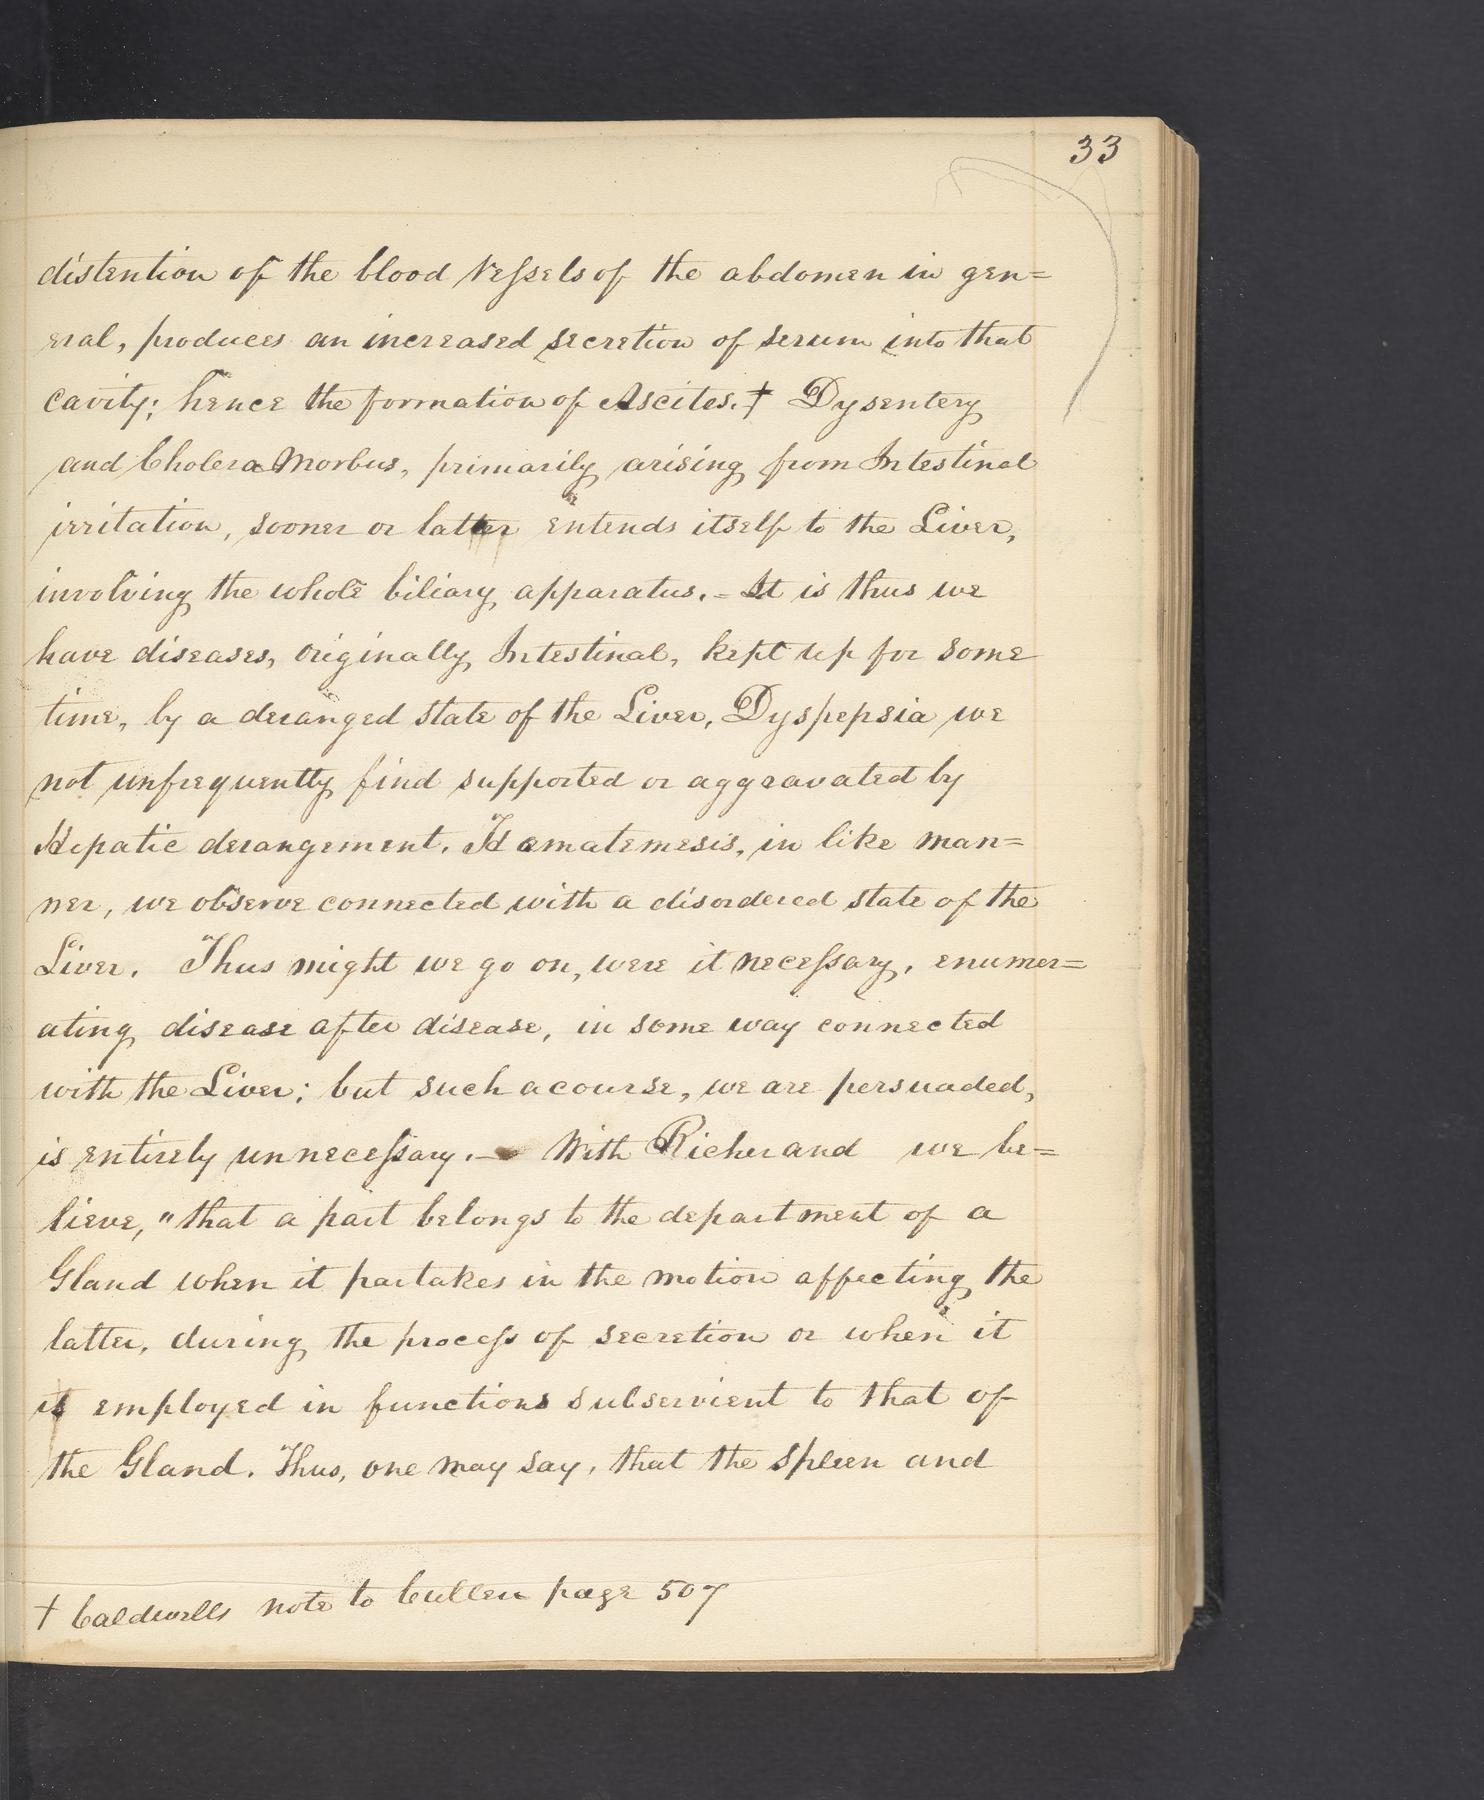 33
distention of the blood vessels of the abdomen in gen=
eral, produces an increased secretion of serum into that
cavity; hence the formation of Ascites.† Dysentery
and Cholera Morbus, primarily arising from Intestinal
irritation, sooner or latter extends itself to the Liver,
involving the whole biliary apparatus. - It is thus we
have diseases, originally Intestinal, kept up for some
time, by a deranged state of the Liver, Dyspepsia we
not unfrequently find supported or aggravated by
Hepatic derangement. Hematemesis, in like man=
ner, we observe connected with a disordered state of the
Liver. Thus might we go on, were it necessary, enumer=
ating disease after disease, in some way connected
with the Liver; but such a course, we are persuaded,
is entirely unnecessary. — With Richerand we be=
lieve, "that a part belongs to the department of a
Gland when it partakes in the motion affecting the
latter, during the process of secretion or when it
is employed in functions subservient to that of
the Gland. Thus, one may say, that the spleen and
† Caldwells note to Cullen page 507